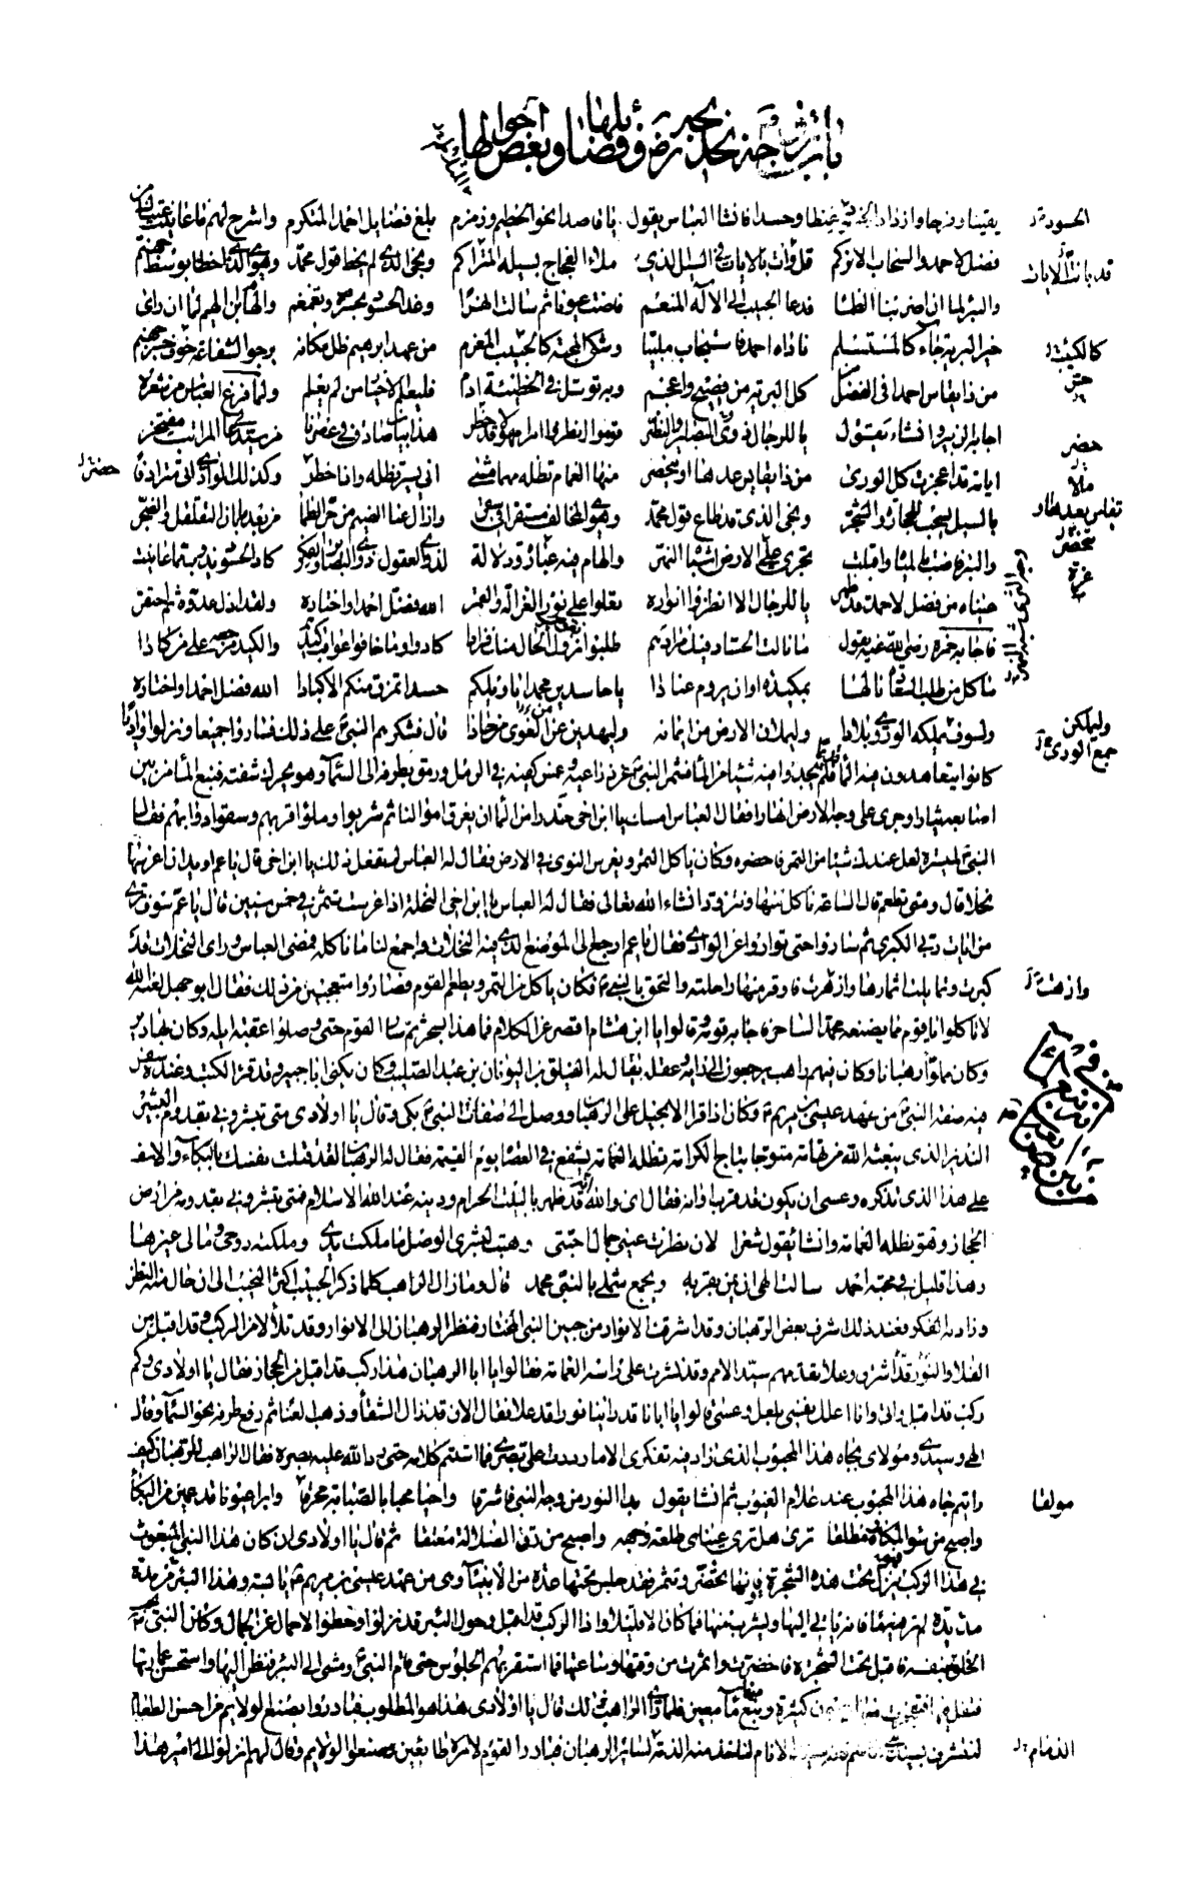 باب تزوجه بخديجة رض وفضائلها وبعض احوالها
يقينا وفرحا وازداد غيظا وحسدا فانشا العباس يقول يا قاصدا نحو الحطيم وزمزم بلغ فضايل احمد المتكرم واشرح لهم ما عاينت عينك من
فضل لاحمد والسحاب الاركم قل وات بالايات في السيل الذي ملاء الفجاج بسيله المتراكم ونجى الذي لم يخط قول محمد وهوى الذي اخطا بوسط جهنم
والبئر لما ان اضر بنا الظما فدعا الحبيب الى الاله المنعم فاضت عيونا ثم سالت انهرا وغدا الحسود بحسرة وتغمغم والهام بن الهيم لما ان راى
خير البرية جاء كالمستسلم ناداه احمد فاستجاب ملبيا وشكى المحبة كالحبيب المغرم من عهد ابرهيم ظل مكانه يرجو الشفاعة خوف حر جهنم
من ذا يقاس احمدا في الفضل كل البرية من فصيح واعجم وبه توسل في الخطيئة ادم فليعلم الاخبار من لم يعلم ولما فرغ العباس من شعره
اجابه الزبير وانشاء يقول يا للرجال ذوي البصاير والنظر قوموا انظروا امرا مهولا قد خطر هذا بيان صادق في عصرنا من سيد عالي المراتب مفتخر
اياته قد اعجزت كل الورى من ذا يقايس عدها او يختصر منها الغمام تظله مهما مشى انى يسير تظله واذا خطر وكذلك الوادي اتى متزايدا
بالسيل يسحب للحجارة والشجر ونجى الذي قد طاع قول محمد وهوى المخالف مستقرا في سقر وازال عنا الضيم من حر الظما من بعد ما بان التقلقل والضجر
والبئر فاضت بالمياه واقبلت تجري على الارض اشباه النهر والهام فيه عبرة ودلالة لذوي العقول ذوي البصاير والفكر كاد الحسود يذوب مما عاينت
عيناه من فضل لاحمد قد ظهر يا للرجال الا انظروا انواره تعلوا على نور الغزالة والقمر الله فضل احمدا واختاره ولقد اذل عدوه ثم احتقر
فاجابه حمزة رضي الله عنه يقول ما نالت الحساد فيك مرادهم طلبوا نقوص الحال منك فزادا كادوا وما خافوا عواقب كيدهم والكيد مرجعه على من كادا
ما كل من طلب السعادة نالها بمكيدة او ان يروم عنادا يا حاسدين محمدا يا ويلكم حسدا تمزق منكم الاكبادا الله فضل احمدا واختاره
ولسوف يملكه الورى وبلادا وليملان الارض من ايمانه وليهدين عن الغوى من حادا قال فشكرهم النبي على ذلك فساروا جميعا ونزلوا واديا
كانوا يتعاهدون فيه الماء فلم يجدوا فيه شيئا من الماء فشمر النبي عن ذراعيه وغمس كفيه في الرمل ورمق بطرفه الى السماء وهو يحرك شفتيه فنبع الماء من بين
اصابعه تيارا وجرى على وجه الارض انهارا فقال العباس امسك يا ابن اخي حذرا من الماء ان يغرق اموالنا ثم شربوا وملؤا قربهم وسقوا دوابهم فقال
النبي لميسرة لعل عندك شيئا من التمر فاحضره وكان ياكل التمر ويغرس النوى في الارض فقال له العباس لم تفعل ذلك يا ابن اخي قال يا عم اريد ان اغرسها
نخلا قال ومتى تطعم قال الساعة ناكل منها ونتزود انشاء الله تعالى فقال له العباس يا ابن اخي النخلة اذا غرست تثمر في خمس سنين قال يا عم سوف ترى
من ايات ربي الكبرى ثم ساروا حتى تواروا عن الوادي فقال يا عم ارجع الى الموضع الذي فيه النخلات واجمع لنا ما ناكله فمضى العباس وراى النخلات قد
كبرت وتمايلت اثمارها وازهرت فاوقر منها راحلته والتحق بالنبي فكان ياكل من التمر ويطعم القوم فصاروا متعجبين من ذلك فقال ابو جهل لعنه الله
لا تاكلوا يا قوم مما يصنعه محمد الساحر فاجابه قومه وقالوا يا ابن هشام اقصر عن الكلام فما هذا بسحر ثم سار القوم حتى وصلوا عقبة ايلة وكان بها دير
وكان مملوا رهبانا وكان فيهم راهب يرجعون الى رايه وعقله يقال له الفيلق بن اليونان بن عبد الصليب وكان يكنى ابا جبير وقد قرا الكتب وعنده سفر
فيه صفة النبي من عهد عيسى بن مريم وكان اذا قرا الانجيل على الرهبان ووصل الى صفات النبي بكى وقال يا اولادي متى تبشروني بقدوم البشير
النذير الذي يبعثه الله من تهامة متوجا بتاج الكرامة تظله الغمامة يشفع في العصاة يوم القيمة فقال له الرهبان لقد قتلت نفسك بالبكاء والاسف
على هذا الذي تذكره وعسى ان يكون قد قرب اوانه فقال اي والله انه قد ظهر بالبيت الحرام ودينه عند الله الاسلام فمتى تبشروني بقدومه من ارض
الحجاز وهو تظله الغمامة وانشا يقول شعرا لان نظرت عيني جمال احبتي وهبت لبشرى الوصل ما ملكت يدي وملكته روحي ومالي غيرها
وهذا قليل في محبة احمد سالت الهي ان يمن بقربه ويجمع شملي بالنبي محمد قال وما زال الراهب كلما ذكر الحبيب اكثر النحيب الى ان حال منه النظر
وزاد به الفكر فعند ذلك شرف بعض الرهبان وقد اشرقت الانوار من جبين النبي المختار فنظر الرهبان الى الانوار وقد تلألأ من الركب وقد اقبل من
الفلا والنور قد اشرق وعلا تقدمهم سيد الامم وقد نشرت على راسه الغمامة فقالوا يا ابا الرهبان هذا ركب قد اقبل من الحجاز فقال يا اولادي وكم
ركب قد اقبل واتى وانا اعلل نفسي بلعل وعسى قالوا يا ابانا قد راينا نورا قد علا فقال الان قد زال الشقا وذهب العنا ثم رفع طرفه نحو السماء وقال
الهي وسيدي ومولاي بجاه هذا المحبوب الذي زاد فيه تفكري الا ما رددت علي بصري فما استتم كلامه حتى رد الله عليه بصره فقال الراهب للرهبان كيف
رايتم جاه هذا المحبوب عند علام الغيوب ثم انشا يقول بدا النور من وجه النبي فاشرقا واحيا محبا بالصبابة محرقا وابرا عيونا قد عمين من البكا
واصبح من سوء المكاره مطلقا ترى هل ترى عيناي طلعة وجهه واصبح من رق الضلالة معتقا ثم قال يا اولادي ان كان هذا النبي المبعوث
في هذا الركب ينزل تحت هذه الشجرة فانها تخضر وتثمر فقد جلس تحتها عدة من الانبياء وهي من عهد عيسى بن مريم يابسة وهذا البئر من مدة
مديدة لم نر فيها ماء فانه ياتي اليها ويشرب منها فما كان الا قليلا واذا الركب قد اقبل وحول البئر قد نزلوا وحطوا الاحمال عن الجمال وكان النبي يحب
الخلوة بنفسه فاقبل تحت الشجرة فاخضرت واثمرت من وقتها وساعتها فما استقر بهم الجلوس حتى قام النبي ومشى الى البئر فنظر اليها واستحسن عمارتها
فتفل فيها فتفجرت منها عيون كثيرة ونبع منها ماء معين فلما راى الراهب ذلك قال يا اولادي هذا هو المطلوب فبادروا بصنع الولايم من احسن الطعام
لنتشرف بسيد بني هاشم فانه سيد الانام لناخذ منه الذمة لسائر الرهبان فبادر القوم لامره طايعين وصنعوا الولايم وقال لهم انزلوا الى امير هذا
الحسود
قد بانت الايات
كالكئيب
حتى
حضر
ملا
تقاس بعدها او
يختصر
غرة
حضر
وجه الثرى شبه النهر
وليملكن
جمع الورى
وازهت
مولقا
الذمام